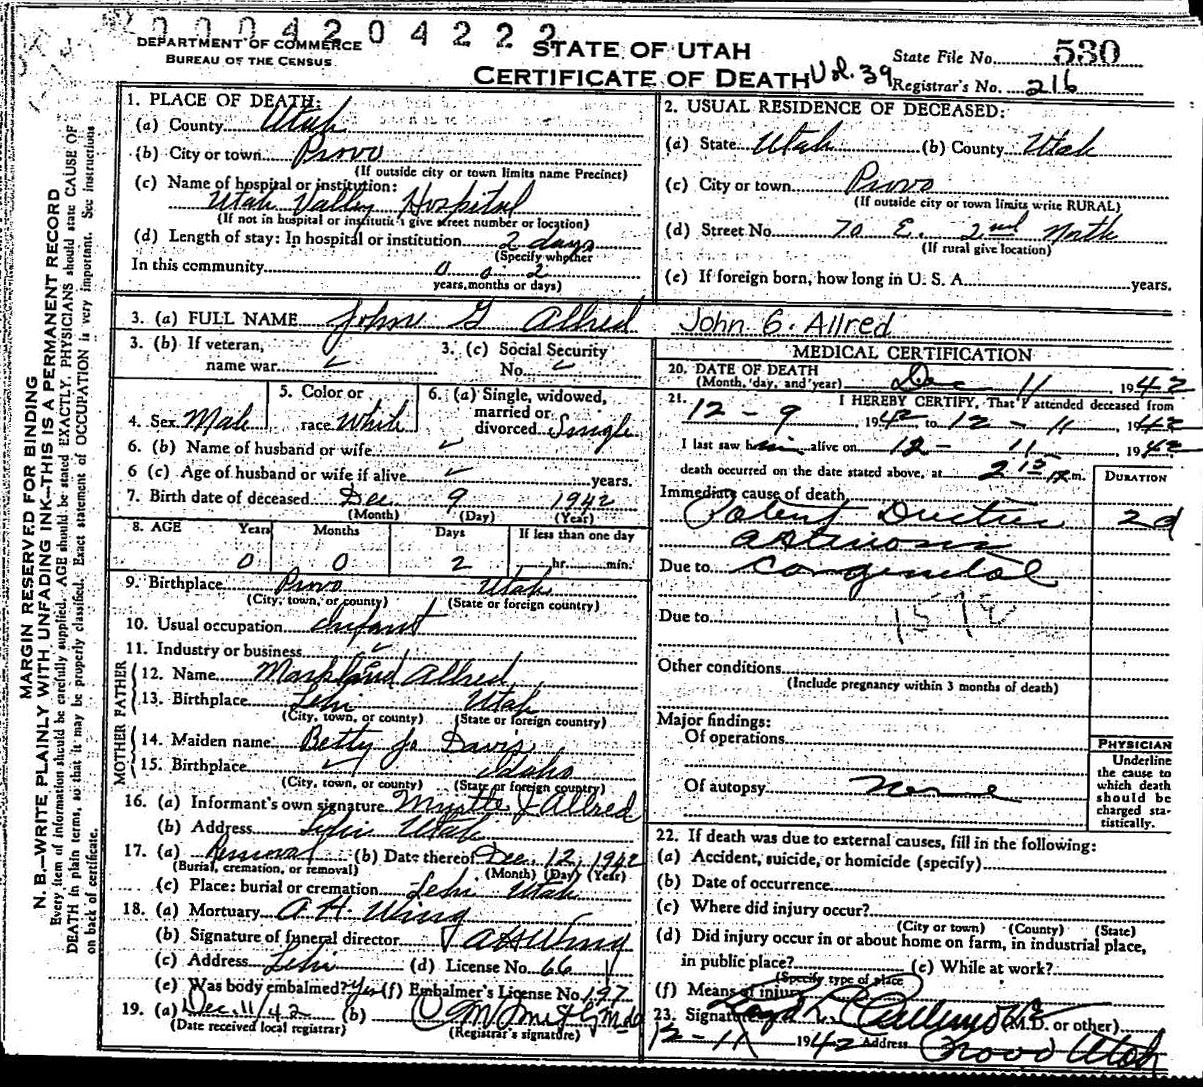 0004204222
DEPARTMENT OF COMMERCE
BUREAU OF THE CENSUS
STATE OF UTAH
CERTIFICATE OF DEATH Vol. 39
State File No. 530
Registrar's No. 216
MARGIN RESERVED FOR BINDING
N. B.—WRITE PLAINLY WITH UNFADING INK—THIS IS A PERMANENT RECORD
Every item of information should be carefully supplied. AGE should be stated EXACTLY. PHYSICIANS should state CAUSE OF
DEATH in plain terms, so that it may be properly classified. Exact statement of OCCUPATION is very important. See instructions
on back of certificate.
1. PLACE OF DEATH:
(a) County Utah
(b) City or town Provo
(If outside city or town limits name Precinct)
(c) Name of hospital or institution:
Utah Valley Hospital
(If not in hospital or institution give street number or location)
(d) Length of stay: In hospital or institution 2 days
(Specify whether
In this community 0 0 2
years, months or days)
2. USUAL RESIDENCE OF DECEASED:
(a) State Utah (b) County Utah
(c) City or town Provo
(If outside city or town limits write RURAL)
(d) Street No. 70 E. 2nd North
(If rural give location)
(e) If foreign born, how long in U. S. A. years.
3. (a) FULL NAME John G Allred John G. Allred
3. (b) If veteran,
name war
3. (c) Social Security
No.
4. Sex Male
5. Color or
race White
6. (a) Single, widowed,
married or
divorced Single
6. (b) Name of husband or wife
6 (c) Age of husband or wife if alive years.
7. Birth date of deceased Dec 9 1942
(Month) (Day) (Year)
8. AGE Years Months Days If less than one day
0 0 2 hr. min.
9. Birthplace Provo Utah
(City, town, or county) (State or foreign country)
10. Usual occupation Infant
11. Industry or business
FATHER
12. Name Allred
13. Birthplace Lehi Utah
(City, town, or county) (State or foreign country)
MOTHER
14. Maiden name Betty Jo Davis
15. Birthplace Idaho
(City, town, or county) (State or foreign country)
16. (a) Informant's own signature Allred
(b) Address Lehi Utah
17. (a) Removal (b) Date thereof Dec. 12, 1942
(Burial, cremation, or removal) (Month) (Day) (Year)
(c) Place: burial or cremation Lehi Utah
18. (a) Mortuary A. H. Wing
(b) Signature of funeral director
(c) Address Lehi (d) License No. 66
(e) Was body embalmed? Yes (f) Embalmer's License No. 197
19. (a) Dec. 11/42 (b)
(Date received local registrar) (Registrar's signature)
MEDICAL CERTIFICATION
20. DATE OF DEATH
(Month, day, and year) Dec 11, 1942
21. I HEREBY CERTIFY, That I attended deceased from
12 - 9, 1942 to 12 - 11, 1942
I last saw him alive on 12 - 11 1942
death occurred on the date stated above, at 2 15 m.
DURATION
Immediate cause of death
Patent Ductus 2 d
Due to Congenital
Due to
Other conditions
(Include pregnancy within 3 months of death)
Major findings:
Of operations
Of autopsy None
PHYSICIAN
Underline
the cause to
which death
should be
charged sta-
tistically.
22. If death was due to external causes, fill in the following:
(a) Accident, suicide, or homicide (specify)
(b) Date of occurrence
(c) Where did injury occur?
(City or town) (County) (State)
(d) Did injury occur in or about home on farm, in industrial place,
in public place? (e) While at work?
(Specify type of place)
(f) Means of injury
23. Signature (M.D. or other)
12-11 1942 Address Provo Utah